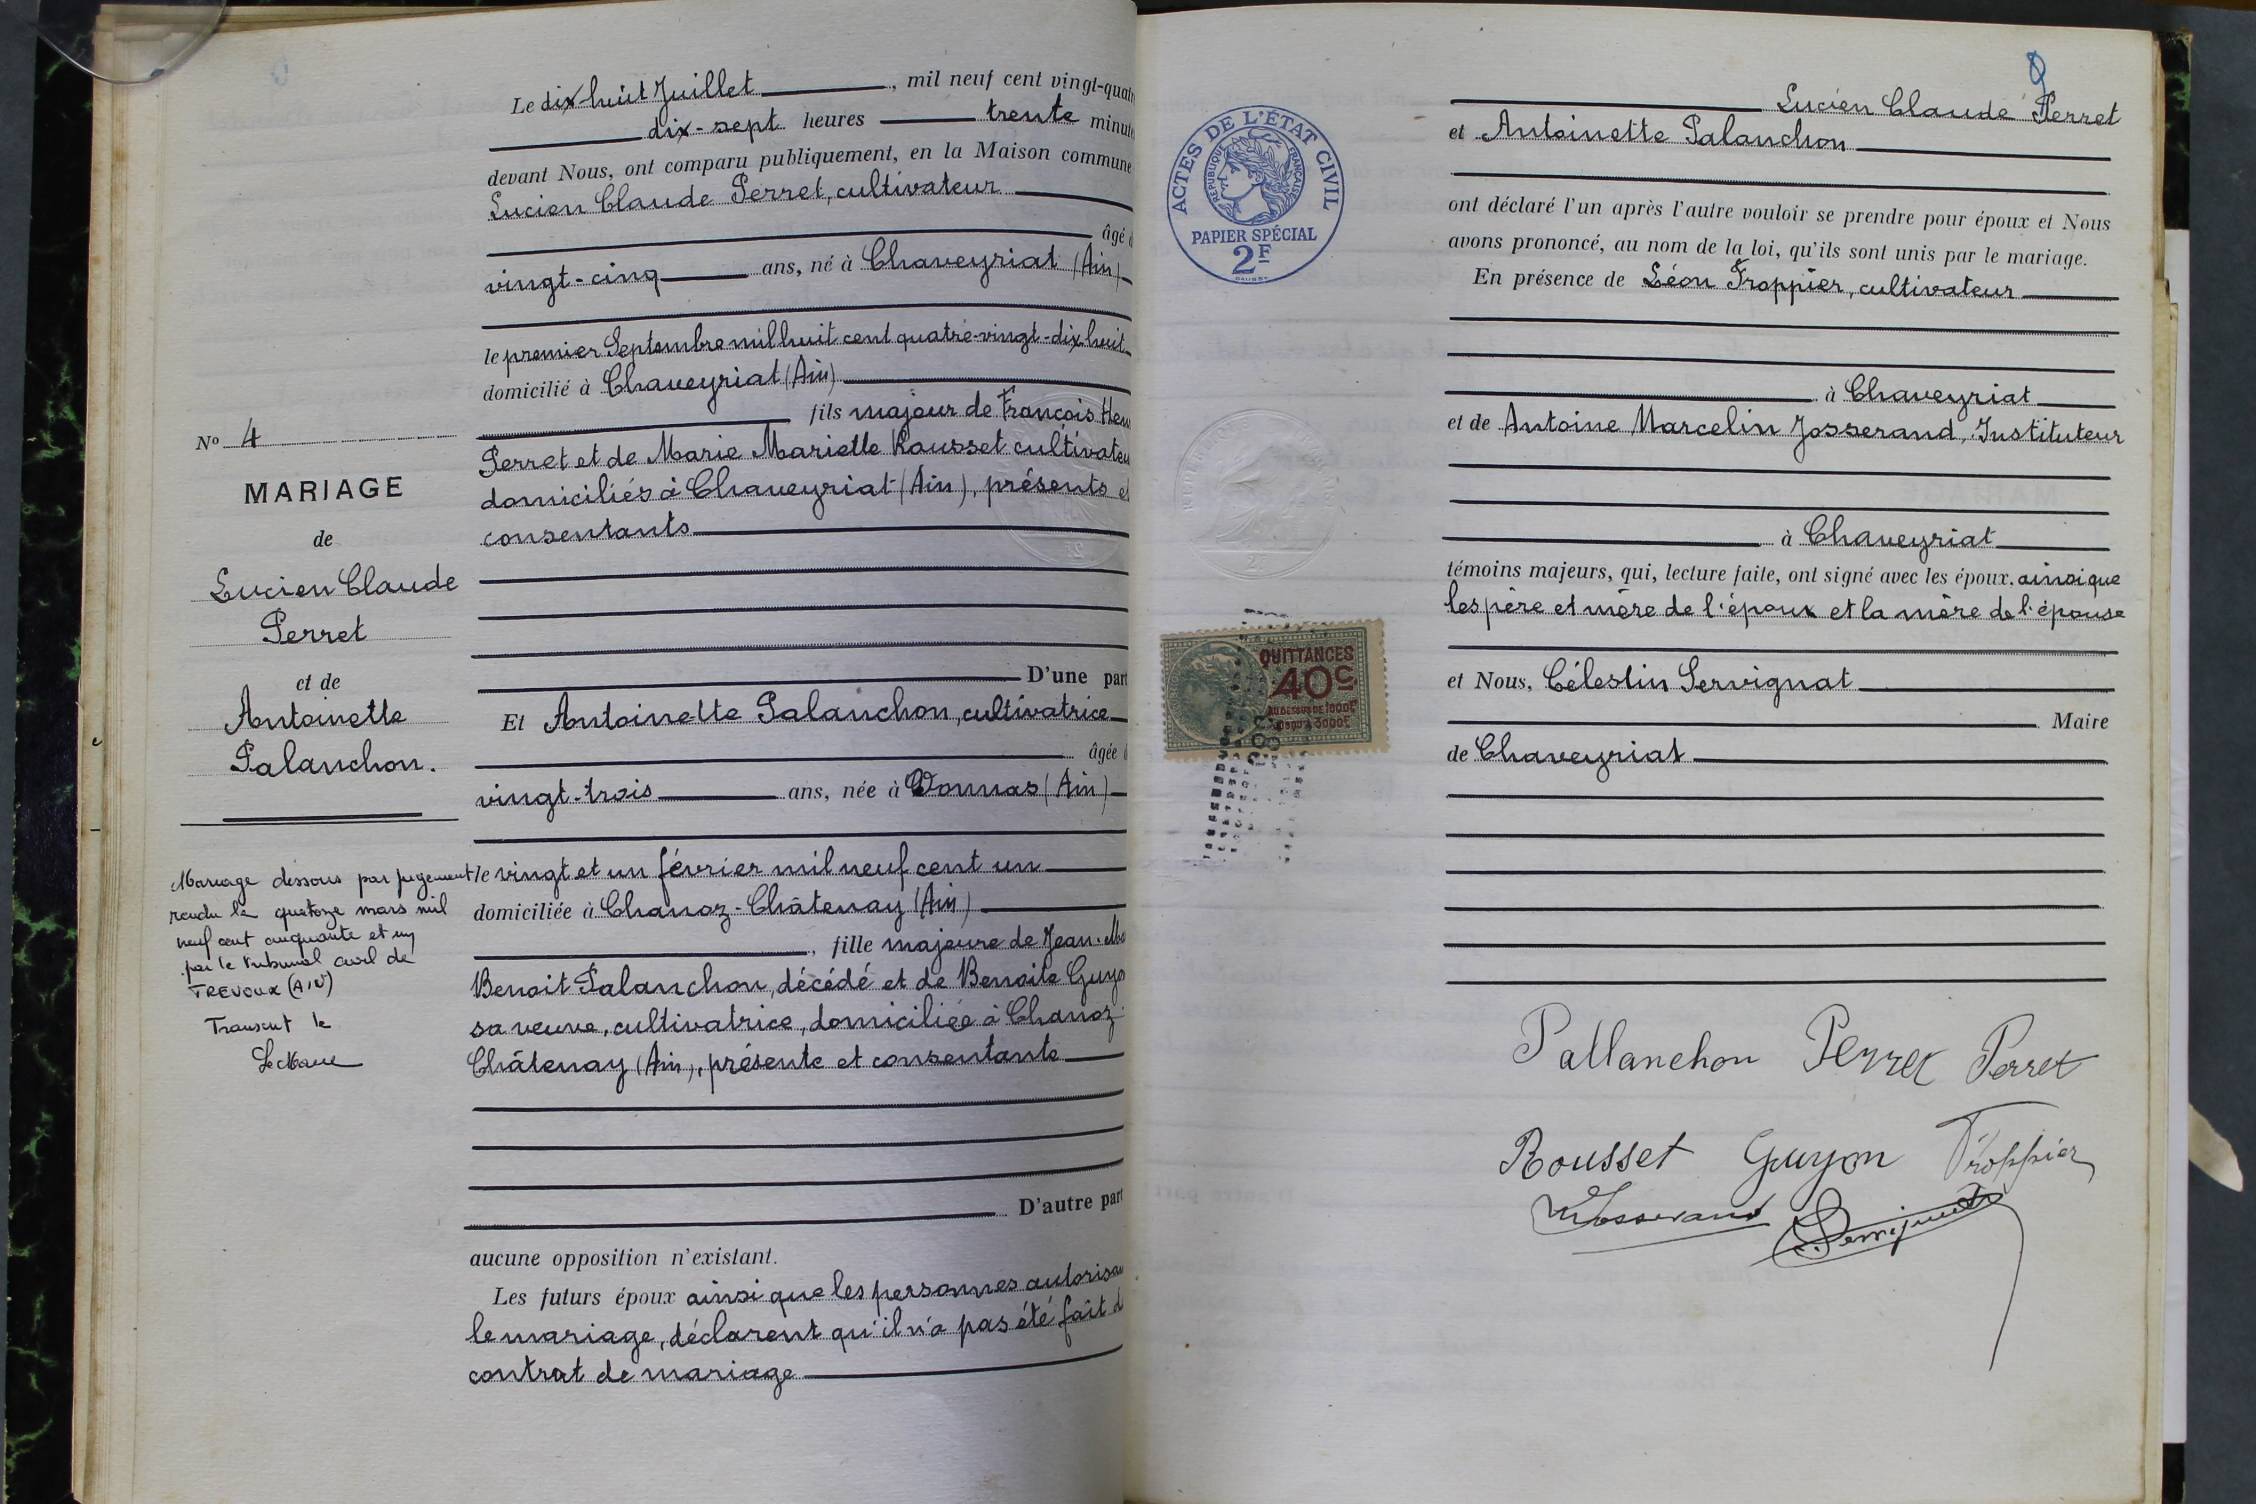 Le dix huit Juillet, mil neuf cent vingt-quatr
dix-sept heures trente minute
devant Nous, ont comparu publiquement, en la Maison commune
Lucien Claude Perret, cultivateur
âgé d
vingt-cinq ans, né à Chaveyriat (Ain)
le premier Septembre mil huit cent quatre-vingt-dix huit
domicilié à Chaveyriat (Ain)
fils majeur de François Hen
Perret et de Marie Mariette Rousset cultivateu
domiciliés à Chaveyriat (Ain), présents et
consentants
D'une part
Et Antoinette Palanchon, cultivatrice
âgée d
vingt-trois ans, née à Vonnas (Ain)
le vingt et un février mil neuf cent un
domiciliée à Chanoz-Châtenay (Ain)
, fille majeure de Jean-Ma
Benoit Palanchon, décédé et de Benoite Guyo
sa veuve, cultivatrice, domiciliée à Chanoz-
Châtenay (Ain), présente et consentante
D'autre part
aucune opposition n'existant.
Les futurs époux ainsi que les personnes autorisan
le mariage, déclarent qu'il n'a pas été fait d
contrat de mariage
No 4
MARIAGE
de
Lucien Claude
Perret
et de
Antoinette
Palanchon.
Mariage dissous par jugement
rendu le quatorze mars mil
neuf cent cinquante et un
par le tribunal civil de
TREVOUX (AIN)
Transcrit le
Le Maire
ACTES DE L'ÉTAT CIVIL
RÉPUBLIQUE FRANÇAISE
PAPIER SPÉCIAL
2F
QUITTANCES
40c
AU DESSUS DE 1000F
JUSQU'À 3000F
Lucien Claude Perret
et Antoinette Palanchon
ont déclaré l'un après l'autre vouloir se prendre pour époux et Nous
avons prononcé, au nom de la loi, qu'ils sont unis par le mariage.
En présence de Léon Froppier, cultivateur
à Chaveyriat
et de Antoine Marcelin Josserand, Instituteur
à Chaveyriat
témoins majeurs, qui, lecture faite, ont signé avec les époux. ainsi que
les père et mère de l'époux et la mère de l'épouse
et Nous, Célestin Servignat
Maire
de Chaveyriat
Pallanchon Perret Perret
Rousset Guyon Froppier
Josserand